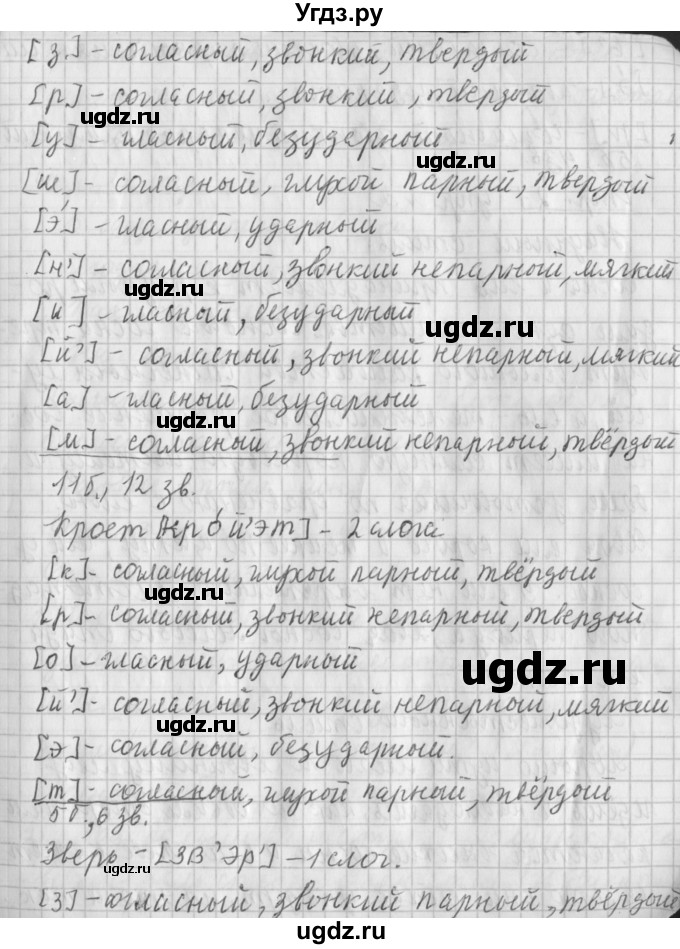 Угдз.ру
[з] - согласный, звонкий, твердый
[р] - согласный, звонкий, твердый
[у] - гласный, безударный
ugdz.ru
[ш] - согласный, глухой парный, твердый
[э́] - гласный, ударный
[н'] - согласный, звонкий непарный, мягкий
ugdz.ru
[и] - гласный, безударный
ugdz.ru
[й'] - согласный, звонкий непарный, мягкий
[а] - гласный, безударный
ugdz.ru
[м] - согласный, звонкий непарный, твёрдый
11б., 12 зв.
Кроет [кро́й'эт] - 2 слога
ugdz.ru
[к] - согласный, глухой парный, твёрдый
[р] - согласный, звонкий непарный, твердый
[о] - гласный, ударный
ugdz.ru
[й'] - согласный, звонкий непарный, мягкий
ugdz.ru
[э] - согласный, безударный.
[т] - согласный, глухой парный, твёрдый
5б., 6 зв.
ugdz.ru
Зверь - [зв'эр'] - 1 слог.
[з] - согласный, звонкий парный, твёрдый
ugdz.ru